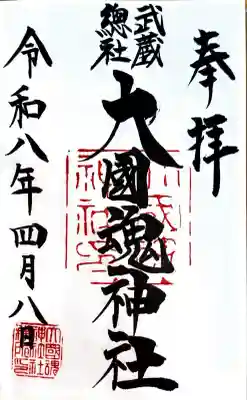 奉拝
武蔵
總社
大國魂神社
令和八年四月八日